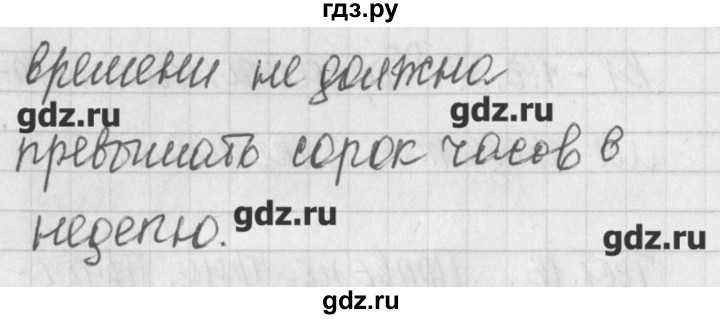 гдз.ру
времени не должна
gdz.ru
gdz.ru
превышать сорок часов в
неделю.
gdz.ru
gdz.ru
gdz.ru